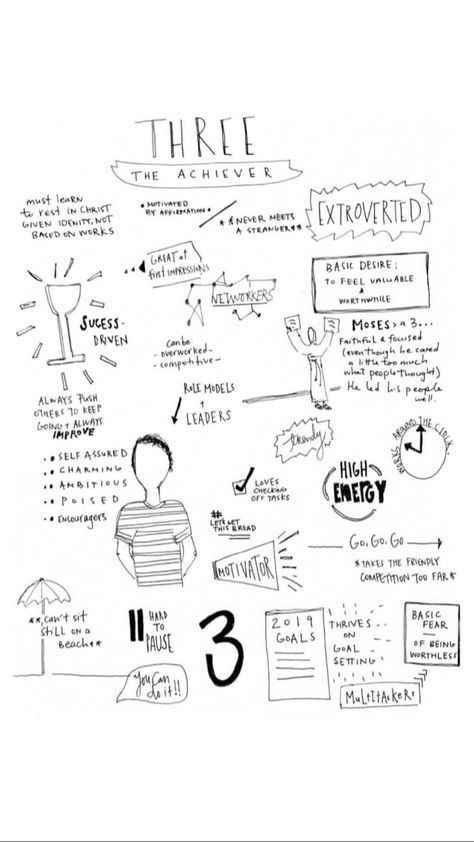 THREE
THE ACHIEVER
must learn
to rest in CHRIST
GIVEN IDENITY, NOT
BASED ON WORKS
• MOTIVATED
BY AFFIRMATION •
**NEVER MEETS
A STRANGER**
EXTROVERTED
GREAT at
first IMPRESSIONS
NETWORKERS
BASIC DESIRE:
TO FEEL VALUABLE
&
WORTHWHILE
SUCESS-
DRIVEN
can be
- overworked -
- competitive -
MOSES > a 3...
Faithful & focused
(even though he cared
a little too much
what people thought)
He led his people
well.
ALWAYS PUSH
OTHERS TO KEEP
GOING + ALWAYS
IMPROVE
ROLE MODELS
+
LEADERS
trendy
WORKS AROUND THE CLOCK
•• SELF ASSURED
•• CHARMING
•• AMBITIOUS
•• POISED
•• ENCOURAGERS
LOVES
CHECKING
OFF TASKS
HIGH
ENERGY
#
LETS GET
THIS BREAD
MOTIVATOR
GO, GO, GO
*TAKES THE FRIENDLY
COMPETITION TOO FAR*
**can't sit
still on a
beach**
HARD
TO
PAUSE
3
2019
GOALS
THRIVES
ON
GOAL
SETTING
BASIC
FEAR
OF BEING
WORTHLESS
you can
do it!!
MULTITACKER